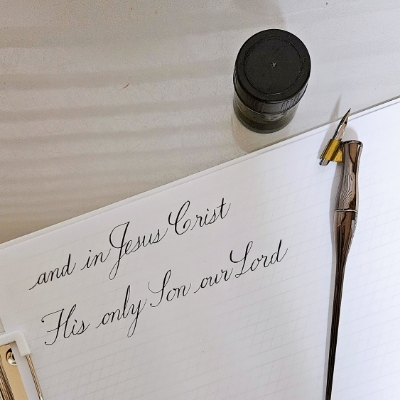 and in Jesus Crist
His only Son our Lord